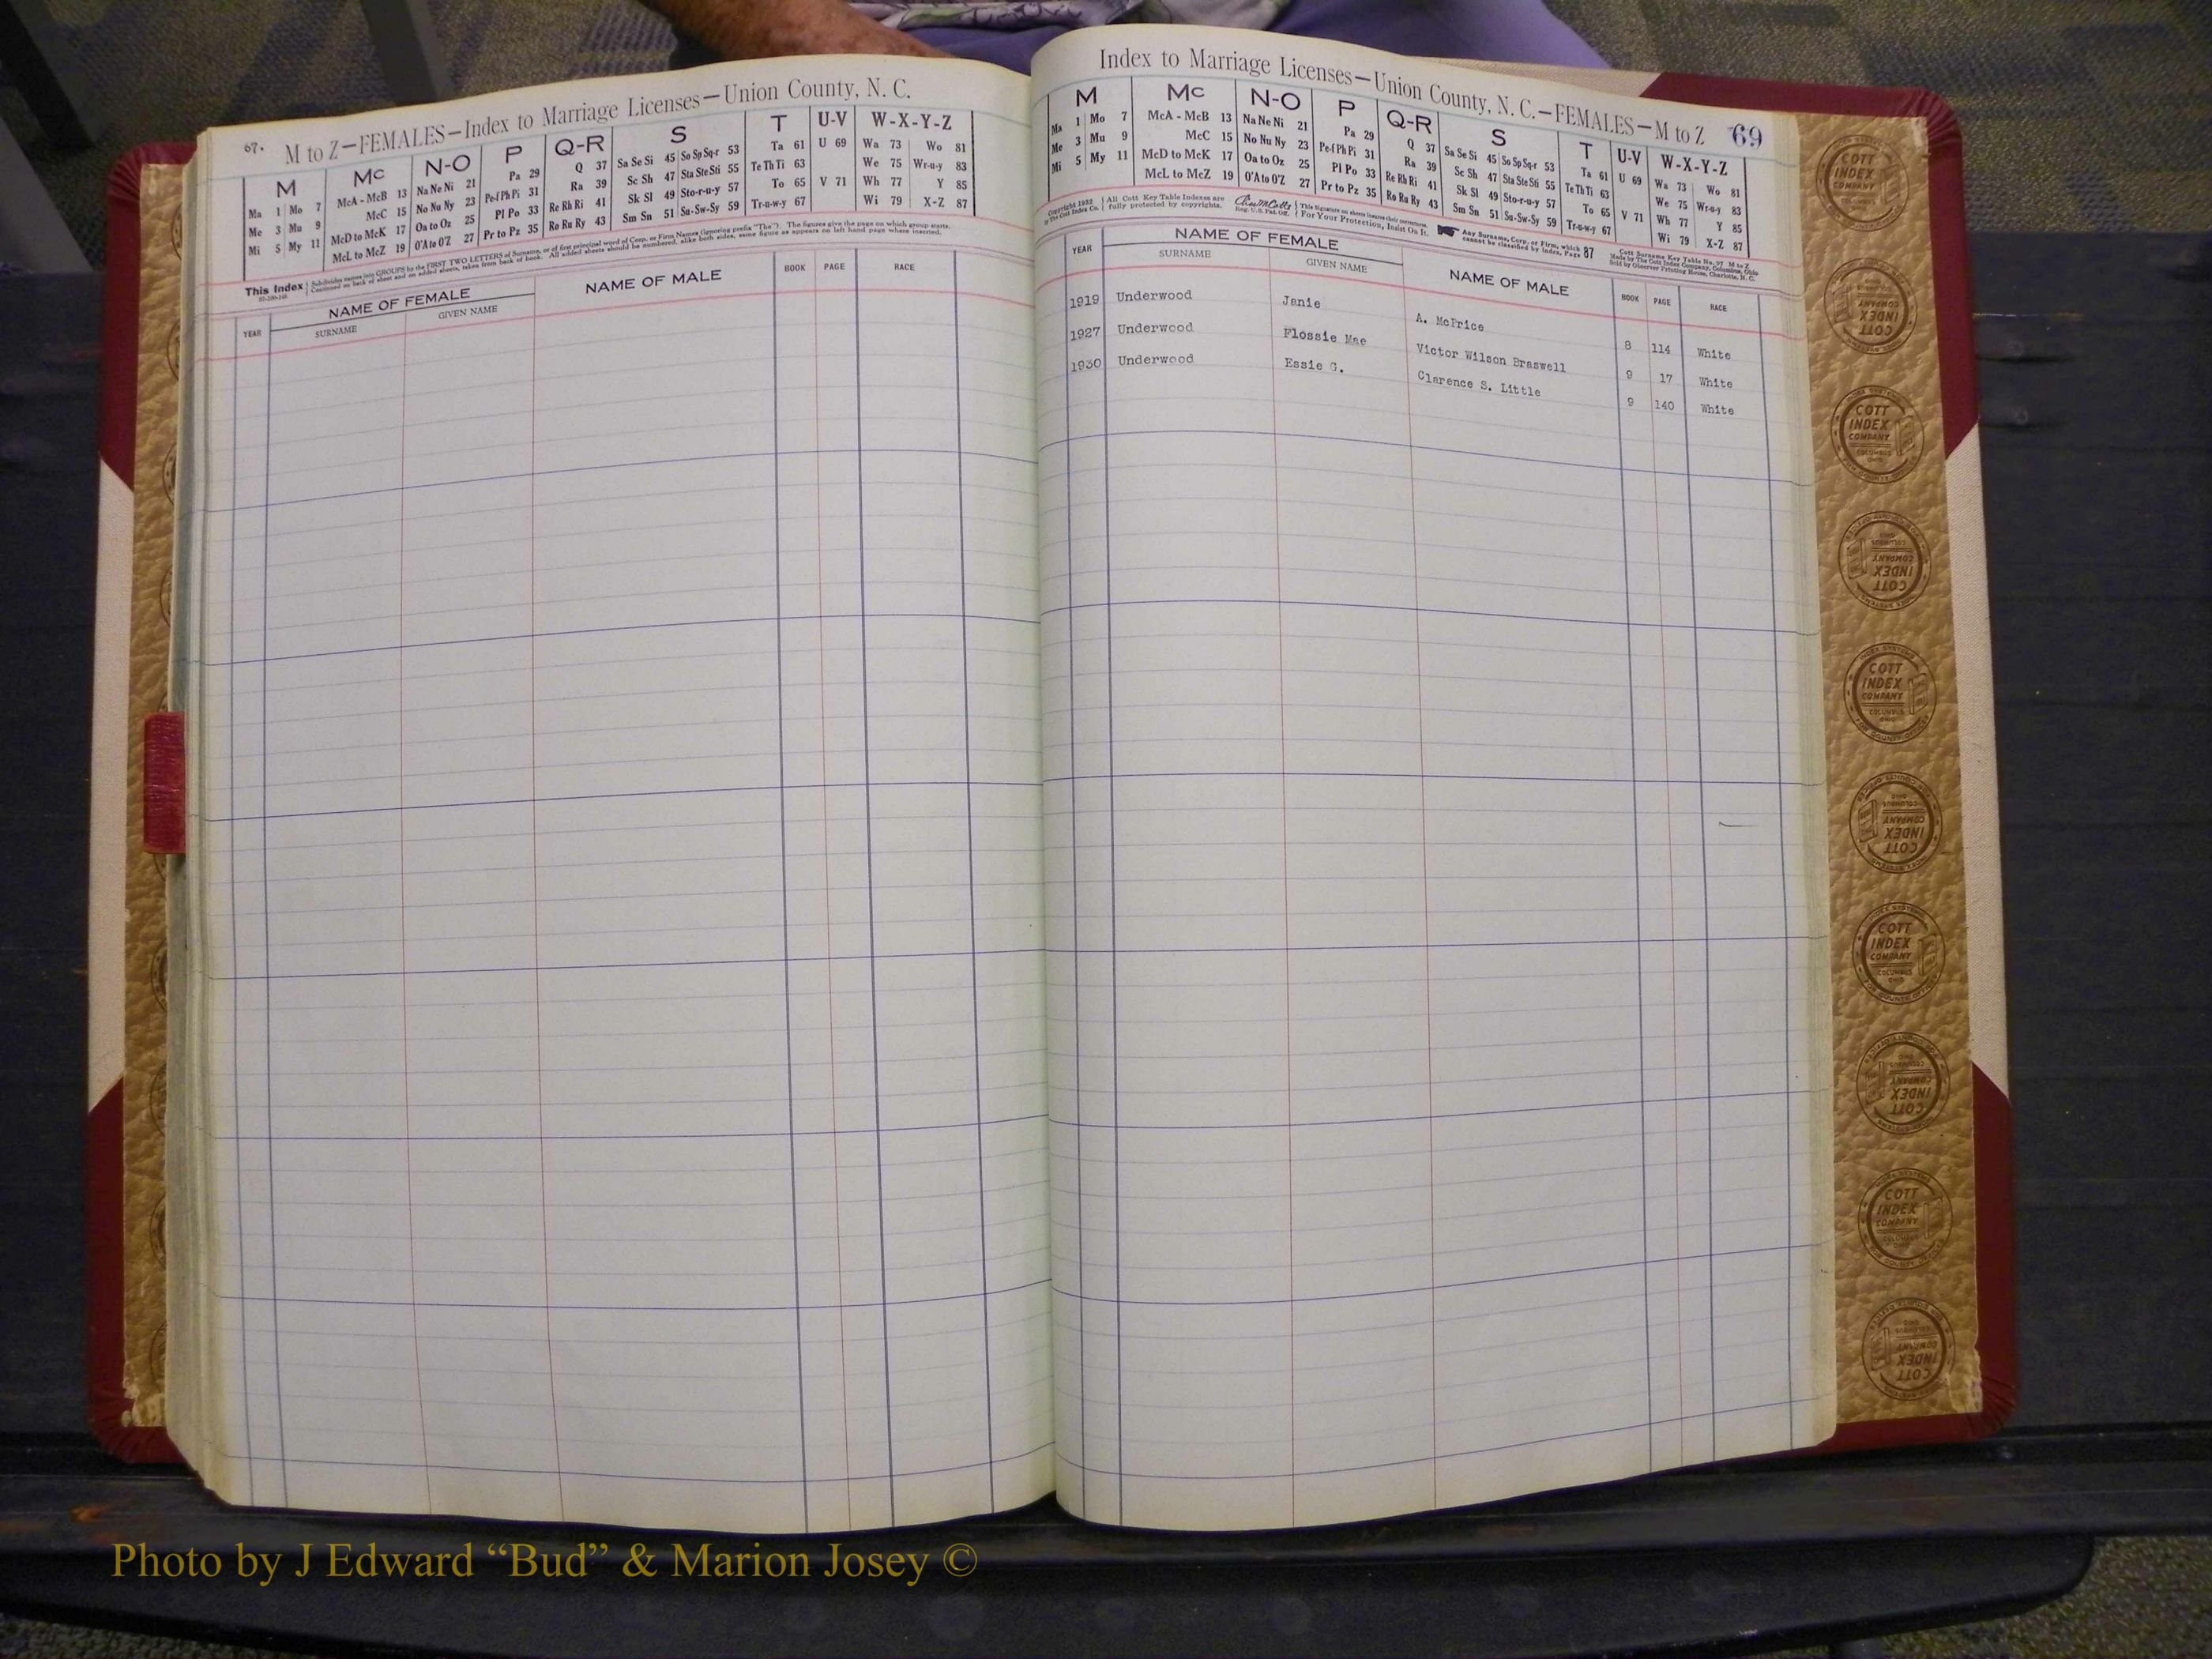 67.
M to Z—FEMALES—Index to Marriage Licenses—Union County, N. C.
M Mc N-O P Q-R S T U-V W-X-Y-Z
Ma 1 Mo 7 McA - McB 13 Na Ne Ni 21 Pa 29 Q 37 Sa Se Si 45 So Sp Sq-r 53 Ta 61 U 69 Wa 73 Wo 81
Me 3 Mu 9 McC 15 No Nu Ny 23 Pe-f Ph Pi 31 Ra 39 Sc Sh 47 Sta Ste Sti 55 Te Th Ti 63 We 75 Wr-u-y 83
Mi 5 My 11 McD to McK 17 Oa to Oz 25 Pl Po 33 Re Rh Ri 41 Sk Sl 49 Sto-r-u-y 57 To 65 V 71 Wh 77 Y 85
McL to McZ 19 O'A to O'Z 27 Pr to Pz 35 Ro Ru Ry 43 Sm Sn 51 Su-Sw-Sy 59 Tr-u-w-y 67 Wi 79 X-Z 87
This Index Subdivides names into GROUPS by the FIRST TWO LETTERS of Surname, or of first principal word of Corp. or Firm Names (ignoring prefix "The"). The figures give the page on which group starts.
Continued on back of sheet and on added sheets, taken from back of book. All added sheets should be numbered, alike both sides, same figure as appears on left hand page where inserted.
YEAR NAME OF FEMALE NAME OF MALE BOOK PAGE RACE
SURNAME GIVEN NAME
Index to Marriage Licenses—Union County, N. C.—FEMALES—M to Z 69
M Mc N-O P Q-R S T U-V W-X-Y-Z
Ma 1 Mo 7 McA - McB 13 Na Ne Ni 21 Pa 29 Q 37 Sa Se Si 45 So Sp Sq-r 53 Ta 61 U 69 Wa 73 Wo 81
Me 3 Mu 9 McC 15 No Nu Ny 23 Pe-f Ph Pi 31 Ra 39 Sc Sh 47 Sta Ste Sti 55 Te Th Ti 63 We 75 Wr-u-y 83
Mi 5 My 11 McD to McK 17 Oa to Oz 25 Pl Po 33 Re Rh Ri 41 Sk Sl 49 Sto-r-u-y 57 To 65 V 71 Wh 77 Y 85
McL to McZ 19 O'A to O'Z 27 Pr to Pz 35 Ro Ru Ry 43 Sm Sn 51 Su-Sw-Sy 59 Tr-u-w-y 67 Wi 79 X-Z 87
Copyright 1922 All Cott Key Table Indexes are This Signature on sheets insures their correctness. Any Surname, Corp. or Firm, which Cott Surname Key Table No. 97 M to Z
by The Cott Index Co. fully protected by copyrights. Reg. U.S. Pat. Off. For Your Protection, Insist On It. cannot be classified by index, Page 87 Made by The Cott Index Company, Columbus, Ohio
Sold by Observer Printing House, Charlotte, N. C.
YEAR NAME OF FEMALE NAME OF MALE BOOK PAGE RACE
SURNAME GIVEN NAME
1919 Underwood Janie A. McPrice 8 114 White
1927 Underwood Flossie Mae Victor Wilson Braswell 9 17 White
1930 Underwood Essie G. Clarence S. Little 9 140 White
COTT INDEX COMPANY
COTT INDEX COMPANY
COTT INDEX COMPANY COLUMBUS
COTT INDEX COMPANY COLUMBUS
COTT INDEX COMPANY COLUMBUS OHIO
COTT INDEX COMPANY COLUMBUS OHIO
COTT INDEX COMPANY COLUMBUS OHIO
COTT INDEX COMPANY COLUMBUS OHIO
COTT INDEX COMPANY COLUMBUS OHIO
COTT INDEX COMPANY COLUMBUS OHIO
Photo by J Edward “Bud” & Marion Josey ©